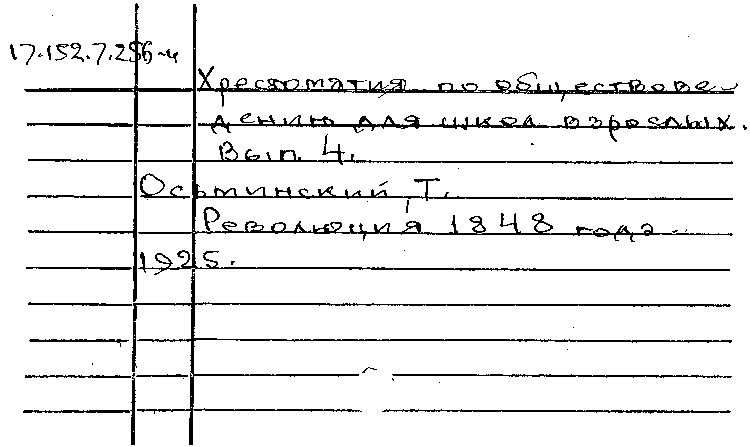 17.152.7.256-4
Хрестоматия по обществове-
дению для школ взрослых.
Вып. 4.
Осьминский, Т.
Революция 1848 года
1925.